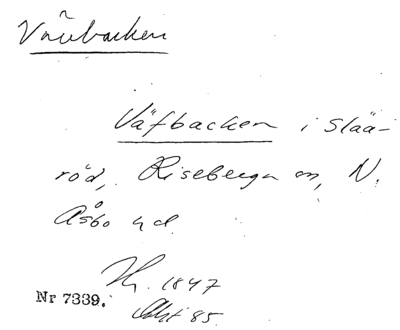 Vävbacken
Väfbacken i Slää-
röd, Riseberga sn, N.
Åsbo hd.
1847
Nr 7339.
85.